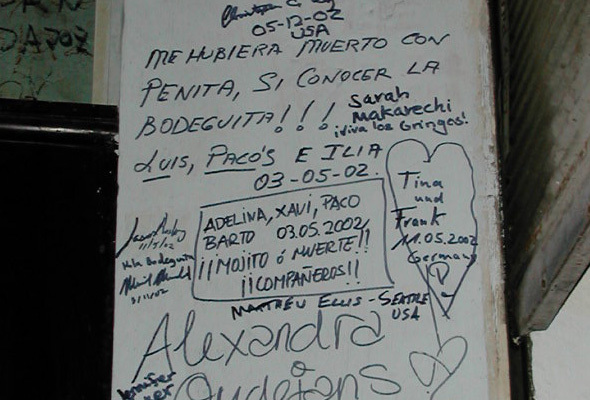 05-12-02
USA
ME HUBIERA MUERTO CON
PENITA, SI CONOCER LA
BODEGUITA!!!
Sarah
Makarechi
¡Viva los Gringos!
LUIS, PACO'S E ILIA
03-05-02.
ADELINA, XAVI, PACO
BARTO 03.05.2002
¡¡MOJITO ó MUERTE!!
¡¡COMPAÑEROS!!
Tina
und
Frank
11.05.2002
Germany
MATTHEW ELLIS - SEATTLE
USA
Alexandra
Oudejans
Jennifer